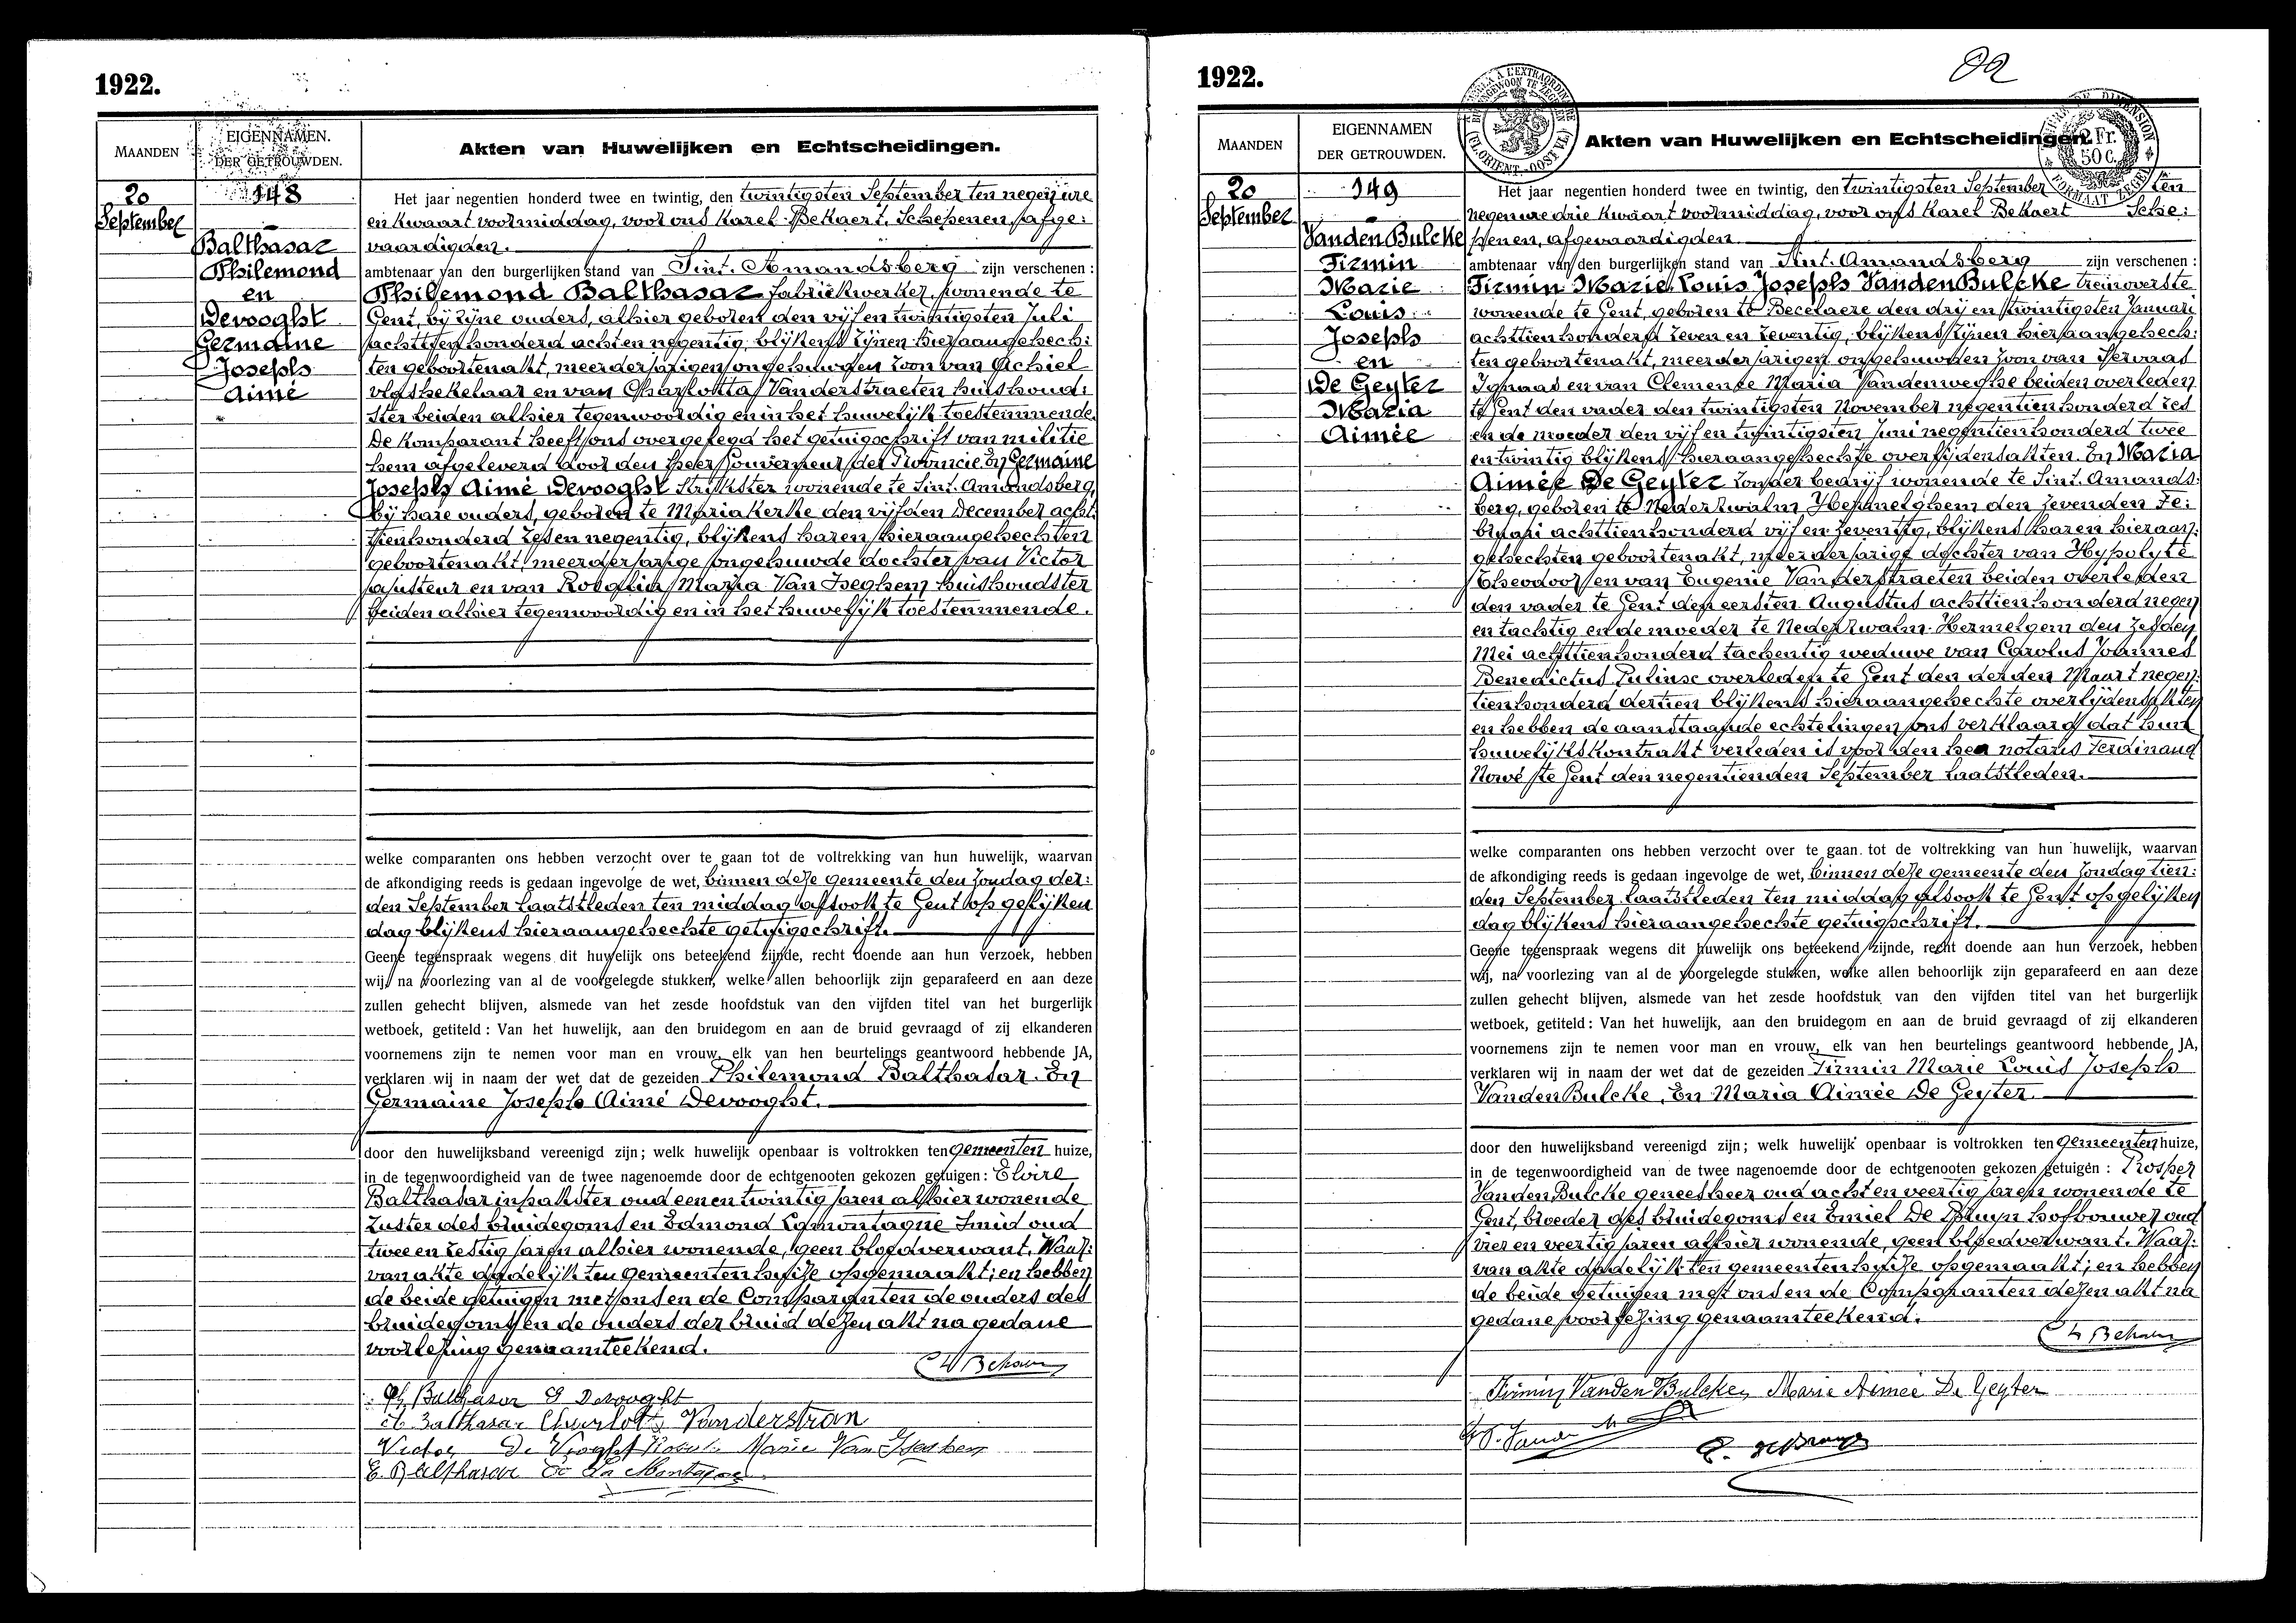 1922.
MAANDEN
EIGENNAMEN.
DER GETROUWDEN.
Akten van Huwelijken en Echtscheidingen.
20
September
148
Balthasar
Philemond
en
Devooght
Germaine
Joseph
Aimé
Het jaar negentien honderd twee en twintig, den twintigsten September ten negen ure
en kwaart voormiddag, voor ons Karel Bekaert, Schepenen, afge:
vaardigden.
ambtenaar van den burgerlijken stand van Sint. Amandsberg zijn verschenen :
Philemond Balthasar fabriekwerker, wonende te
Gent, bij zijne ouders, alhier geboren den vijf en twintigsten Juli
achttien honderd acht en negentig, blijkens zijnen hieraangehech:
ten geboortenakt, meerderjarigen ongehuwden zoon van Achiel
vlashekelaar en van Charlotta Vanderstraeten huishoud:
ster beiden alhier tegenwoordig en in het huwelijk toestemmende.
De komparant heeft ons overgelegd het getuigschrift van militie
hem afgeleverd door den heer Gouverneur der Provincie. En Germaine
Joseph Aimé Devooght strijkster wonende te Sint. Amandsberg,
bij hare ouders, geboren te Mariakerke den vijfden December acht:
tienhonderd zes en negentig, blijkens haren hieraangehechten
geboortenakt, meerderjarige ongehuwde dochter van Victor
ajusteur en van Rosalia Maria Van Iseghem huishoudster
beiden alhier tegenwoordig en in het huwelijk toestemmende.
welke comparanten ons hebben verzocht over te gaan tot de voltrekking van hun huwelijk, waarvan
de afkondiging reeds is gedaan ingevolge de wet, binnen deze gemeente den zondag der:
den September laatstleden ten middag alsook te Gent op gelijken
dag blijkens hieraangehechte getuigschrift.
Geene tegenspraak wegens dit huwelijk ons beteekend zijnde, recht doende aan hun verzoek, hebben
wij, na voorlezing van al de voorgelegde stukken, welke allen behoorlijk zijn geparafeerd en aan deze
zullen gehecht blijven, alsmede van het zesde hoofdstuk van den vijfden titel van het burgerlijk
wetboek, getiteld : Van het huwelijk, aan den bruidegom en aan de bruid gevraagd of zij elkanderen
voornemens zijn te nemen voor man en vrouw, elk van hen beurtelings geantwoord hebbende JA,
verklaren wij in naam der wet dat de gezeiden Philemond Balthasar. En
Germaine Joseph Aimé Devooght.
door den huwelijksband vereenigd zijn ; welk huwelijk openbaar is voltrokken ten gemeenten huize,
in de tegenwoordigheid van de twee nagenoemde door de echtgenooten gekozen getuigen : Elvire
Balthasar inpakster oud een en twintig jaren alhier wonende
zuster des bruidegoms en Edmond Lamontagne smid oud
twee en zestig jaren alhier wonende, geen bloedverwant. Waar:
van akte dadelijk ten gemeentenhuize opgemaakt; en hebben
de beide getuigen met ons en de Comparanten de ouders des
bruidegoms en de ouders der bruid dezen akt na gedane
voorlezing genaamteekend.
Ph Balthasar G Devooght
Balthasar Vanderstran
Victor De Vooght Marie Van
E. Balthasar
1922.
MAANDEN
EIGENNAMEN
DER GETROUWDEN.
Akten van Huwelijken en Echtscheidingen.
2 Fr.
50 C.
20
September
149
Vanden Bulcke
Firmin
Marie
Louis
Joseph
en
De Geyter
Maria
Aimée
Het jaar negentien honderd twee en twintig, den twintigsten September ten
negen ure drie kwaart voormiddag, voor ons Karel Bekaert Sche:
penen, afgevaardigden
ambtenaar van den burgerlijken stand van Sint. Amandsberg zijn verschenen :
Firmin Marie Louis Joseph Vanden Bulcke treinoverste
wonende te Gent, geboren te Becelaere den drij en twintigsten Januari
achttienhonderd zeven en zeventig, blijkens zijnen hieraangehech:
ten geboortenakt, meerderjarigen ongehuwden zoon van Servaas
Ignaas en van Clemence Maria Vandenweghe beiden overleden
te Gent den vader den twintigsten November negentienhonderd zes
en de moeder den vijf en twintigsten Juni negentienhonderd twee
en twintig blijkens hieraangehechte overlijdensakten. En Maria
Aimée De Geyter zonder bedrijf wonende te Sint. Amands:
berg, geboren te Nederzwalm Hermelghem den zevenden Fe:
bruari achttienhonderd vijf en zeventig, blijkens haren hieraan:
gehechten geboortenakt, meerderjarige dochter van Hypolyte
Theodoor en van Eugenie Vanderstraeten beiden overleden
den vader te Gent den eersten Augustus achttienhonderd negen
en tachtig en de moeder te Nederzwalm. Hermelgem den zesden
Mei achttienhonderd tachentig weduwe van Carolus Joannes
Benedictus overleden te Gent den derden Maart negen:
tienhonderd dertien blijkens hieraangehechte overlijdensakten
en hebben de aanstaande echtelingen ons verklaard dat hun
huwelijkskontrakt verleden is voor den heer notaris Ferdinand
Nowé te Gent den negentienden September laatstleden.
welke comparanten ons hebben verzocht over te gaan tot de voltrekking van hun huwelijk, waarvan
de afkondiging reeds is gedaan ingevolge de wet, binnen deze gemeente den zondag tien:
den September laatstleden ten middag alsook te Gent op gelijken
dag blijkens hieraangehechte getuigschrift.
Geene tegenspraak wegens dit huwelijk ons beteekend zijnde, recht doende aan hun verzoek, hebben
wij, na voorlezing van al de voorgelegde stukken, welke allen behoorlijk zijn geparafeerd en aan deze
zullen gehecht blijven, alsmede van het zesde hoofdstuk van den vijfden titel van het burgerlijk
wetboek, getiteld : Van het huwelijk, aan den bruidegom en aan de bruid gevraagd of zij elkanderen
voornemens zijn te nemen voor man en vrouw, elk van hen beurtelings geantwoord hebbende JA,
verklaren wij in naam der wet dat de gezeiden Firmin Marie Louis Joseph
Vanden Bulcke. En Maria Aimée De Geyter.
door den huwelijksband vereenigd zijn ; welk huwelijk openbaar is voltrokken ten gemeenten huize,
in de tegenwoordigheid van de twee nagenoemde door de echtgenooten gekozen getuigen : Prosper
Vanden Bulcke geneesheer oud acht en veertig jaren wonende te
Gent, broeder des bruidegoms en Emiel De Bruyn hofbouwer oud
vier en veertig jaren alhier wonende, geen bloedverwant. Waar:
van akte dadelijk ten gemeentenhuize opgemaakt; en hebben
de beide getuigen met ons en de Comparanten dezen akt na
gedane voorlezing genaamteekend.
Firmin Vanden Bulcke Marie Aimée De Geyter